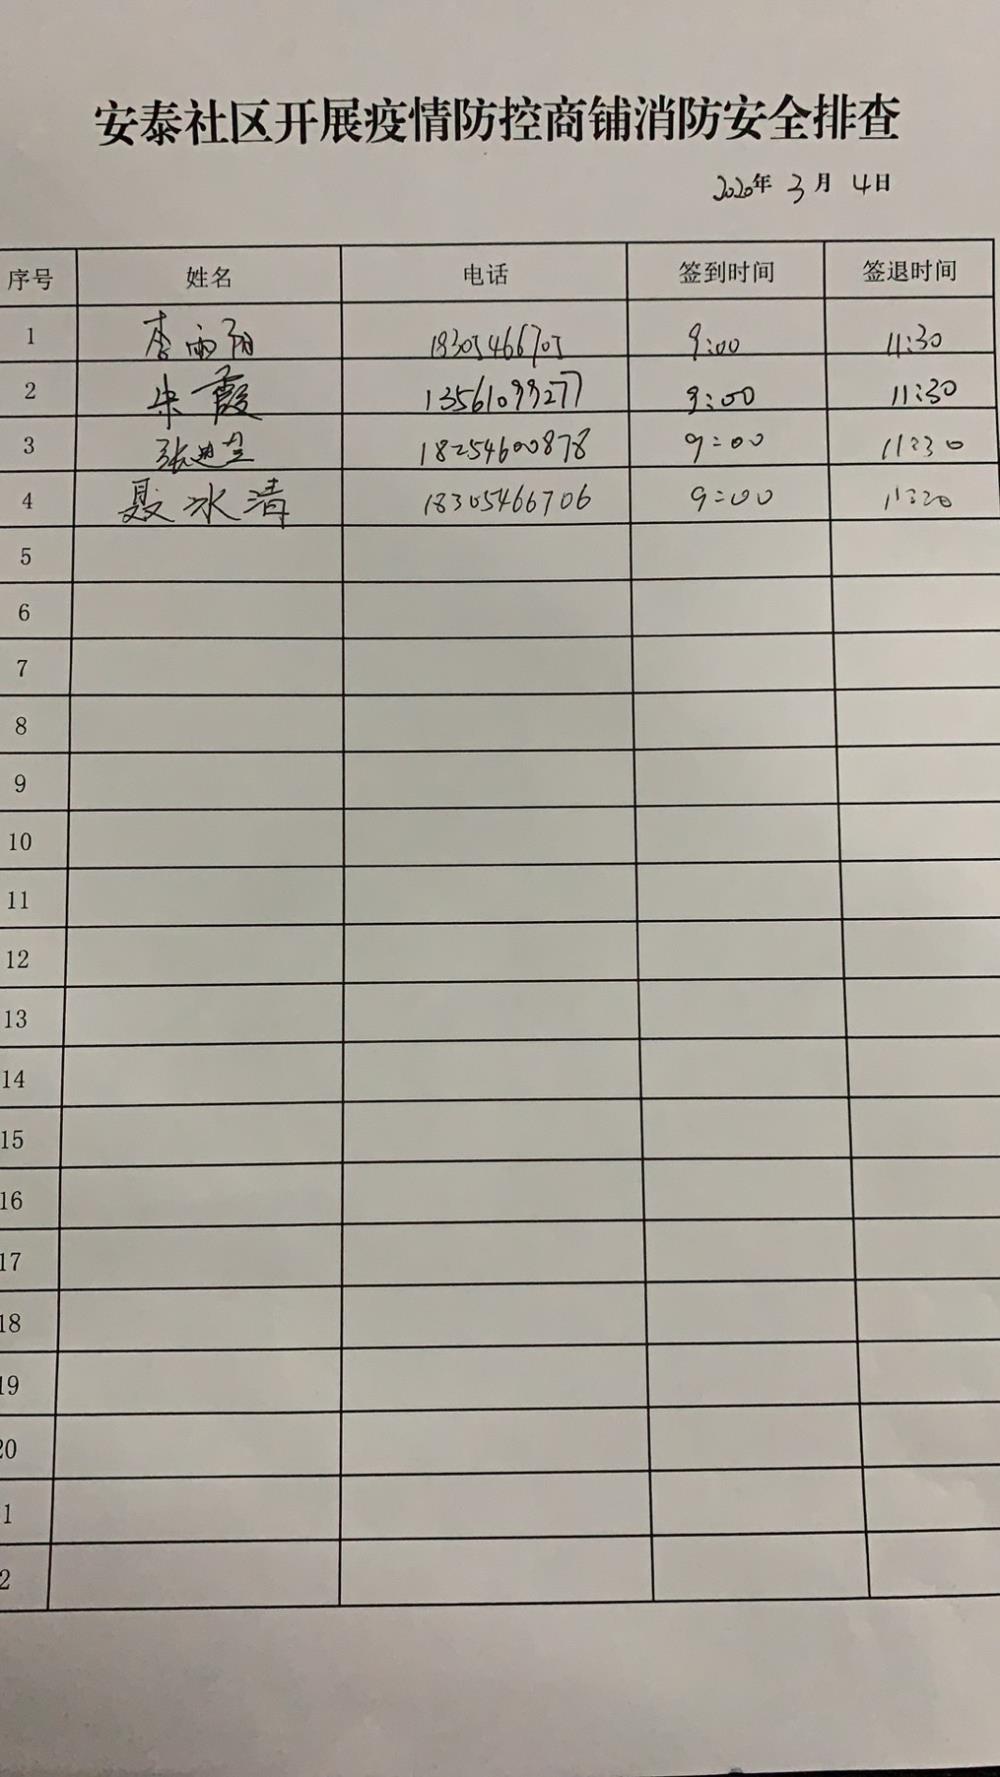 安泰社区开展疫情防控商铺消防安全排查
2020年 3月 4日
序号 姓名 电话 签到时间 签退时间
1 李雨阳 18305466705 9:00 11:30
2 朱霞 13561099277 9:00 11:30
3 张 18254600878 9:00 11:30
4 聂冰清 18305466706 9:00 11:30
5
6
7
8
9
10
11
12
13
14
15
16
17
18
19
20
1
2